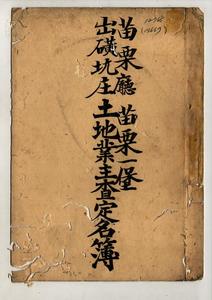 苗栗廳苗栗一堡
出磺坑庄土地業主查定名簿